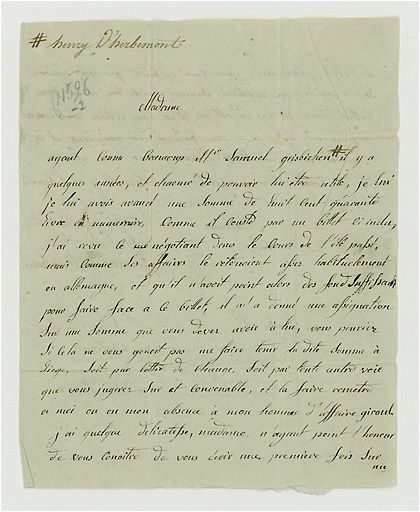 # henry D'herbemont
11596
-2
Madame
ayant Connu beaucoup Mr Samuel grisbichen # il y a
quelques années, et charmé de pouvoir lui être utile, je lui
je lui avois avancé une Somme de huit Cent quarante
livre en numeraire, Comme il Conste par un billet ci inclus,
j'ai revu le négotiant dans le Cours de l'Eté passé,
mais Comme Ses affaires le retenoient assez habituellement
en allemagne, et qu'il n'avoit point alors des fond Suffissant
pour faire face a ce billet, il m'a donné une assignation
Sur une Somme que vous devez avoir à lui, vous pourriez
Si Cela ne vous genoit pas me faire tenir la dite Somme à
liege, Soit par lettre de Change, Soit par tout autre voie
que vous jugerez Sur et Convenable, et la faire remetre
a moi ou en mon absence à mon homme d'affaire giroul
j'ai quelque délicatesse, madame, n'ayant point l'honneur
de vous Conoitre de vous écrir une premiere fois Sur
un